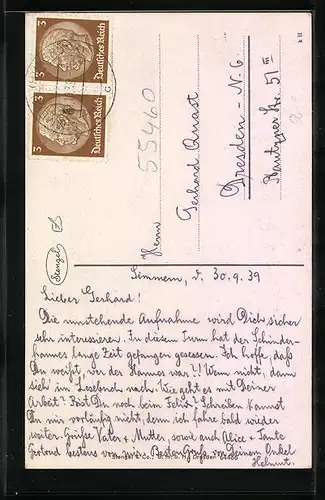 3
Deutsches Reich
3
Deutsches Reich
55460
Herrn
Gerhard Quast
Dresden - N. 6
Bautzner Str. 51 III
Stengel
Simmern, d. 30.9.39
Lieber Gerhard!
Die umstehende Aufnahme wird Dich sicher
sehr interessieren. In diesem Turm hat der Schinder-
hannes lange Zeit gefangen gesessen. Ich hoffe, daß
Du weißt, wer der Hannes war?! Wenn nicht, dann
sieh' im Lesebuch nach. Wie geht es mit Deiner
Arbeit? Bist Du noch beim Felix? Schreiben kannst
Du mir vorläufig nicht, denn ich fahre bald wieder
weiter. Grüße Vater u. Mutter, sowie auch Alice u. Tante
Gertrud bestens von mir. Besten Gruß von Deinem Onkel
Helmut.